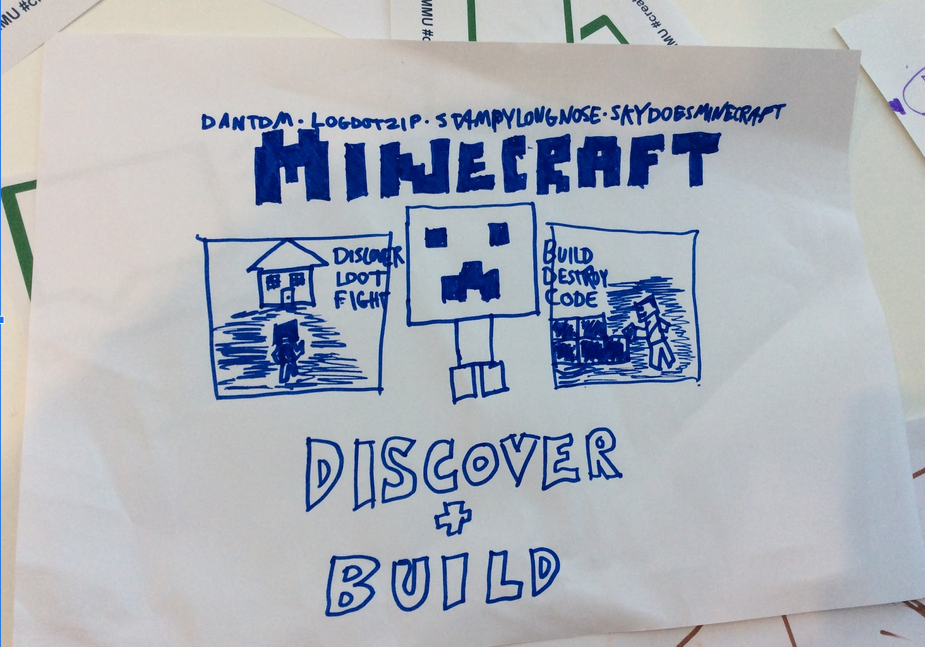 MMU #c
MMU #c
#creat
MMU
DANTDM · LOGDOTZIP · STAMPYLONGNOSE · SKYDOESMINECRAFT
MINECRAFT
DISCOVER
LOOT
FIGHT
BUILD
DESTROY
CODE
DISCOVER
+
BUILD